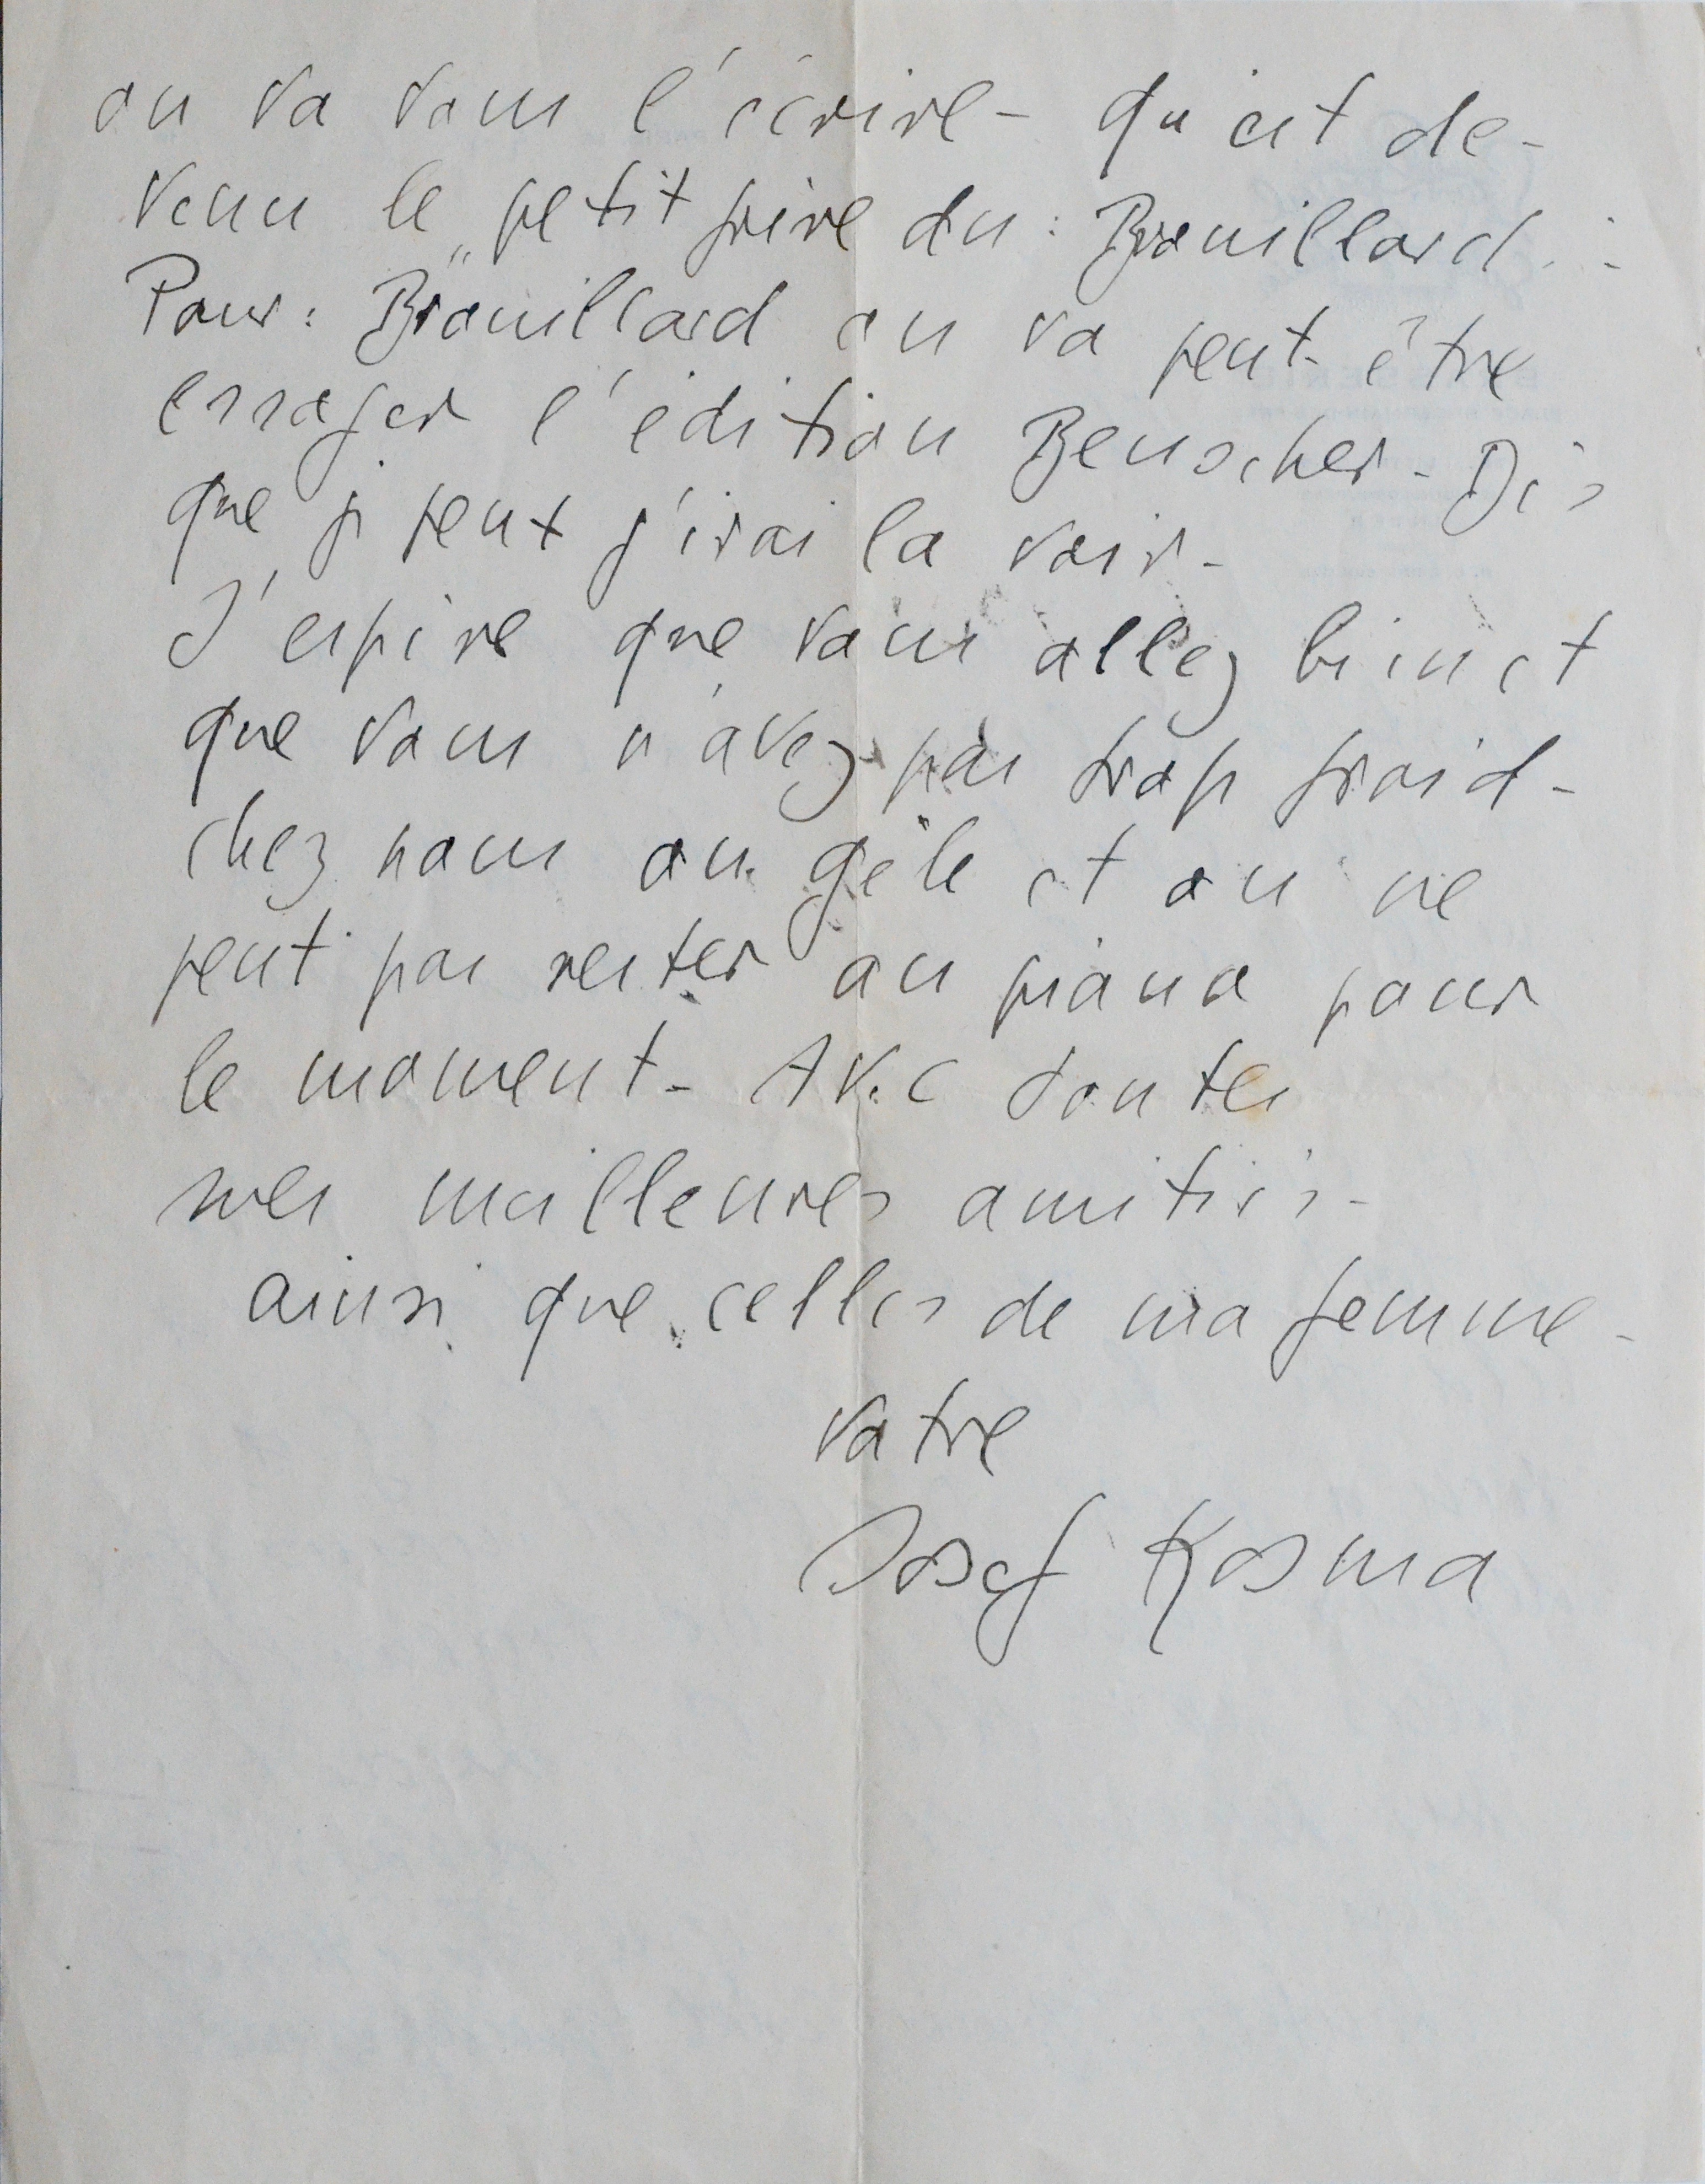 on va vous l'écrire - Qu'est de-
venu le "petit frère du: Brouillard.:
Pour: Brouillard on va peut-être
essayer l'édition Beuscher - Dès
que je peux j'irai la voir -
J'espère que vous allez bien et
que vous n'avez pas trop froid -
chez nous on gèle et on ne
peut pas rester au piano pour
le moment - Avec toutes
mes meilleures amitiés -
ainsi que celles de ma femme -
votre
Josef Kosma